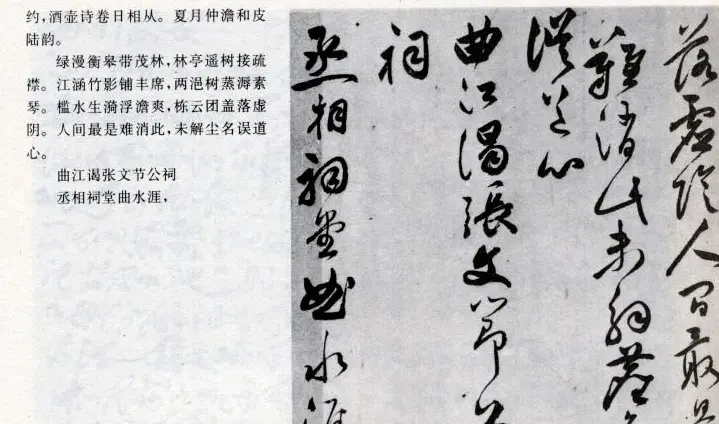 约,酒壶诗卷日相从。夏月仲澹和皮
陆韵。
绿漫衡皋带茂林,林亭遥树接疏
襟。江涵竹影铺丰席,两浥树蒸溽素
琴。槛水生漪浮澹爽,栋云团盖落虚
阴。人间最是难消此,未解尘名误道
心。
曲江谒张文节公祠
丞相祠堂曲水涯,
落虚阴人间最是
难消此未解尘名
误道心
曲江谒張文节公
祠
丞相祠堂曲水涯